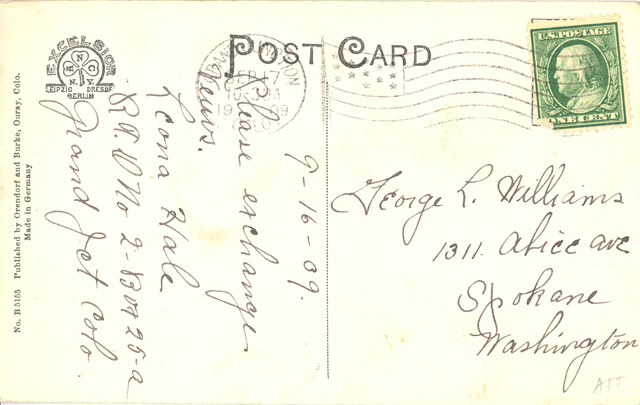 POST CARD
EXCELSIOR
ANC
N.Y.
LEIPZIG DRESD
BERLIN
GRAND JUNCTION
SEP 17
1909
COLO.
U.S. POSTAGE
ONE CENT
9-16-09.
Please exchange
views.
Leona Hale
R.F.D No 2-Box 25-a
Grand Jct Colo
George L. Williams
1311. Alice ave
Spokane
Washington
ATT
No. B 5155 Published by Orendorf and Burke, Ouray, Colo.
Made in Germany